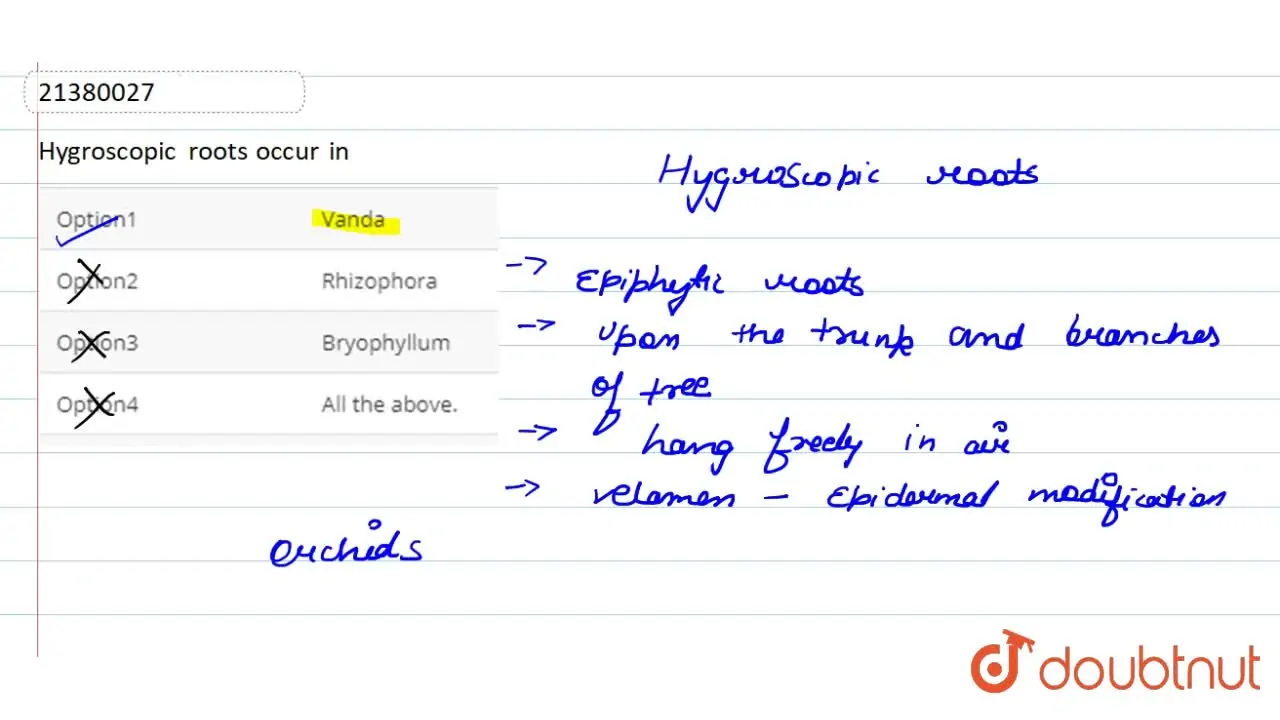 21380027
Hygroscopic roots occur in
Hygroscopic roots
Option1 Vanda
Option2 Rhizophora
→ Epiphytic roots
Option3 Bryophyllum
→ upon the trunk and branches
of tree
Option4 All the above.
→ hang freely in air
→ velamen – Epidermal modification
orchids
doubtnut